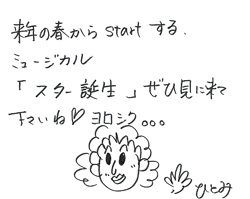 来年の春から start する.
ミュージカル
「スター誕生」ぜひ見に来て
下さいね♡ ヨロシク。。。
ひとみ